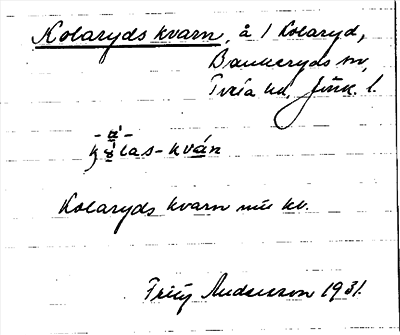 Kolaryds kvarn, å 1 Kolaryd,
Bankeryds sn,
Tveta hd, Jönk. l.
las-kván
Kolaryds kvarn nu kv.
Fritz Andersson 1931.